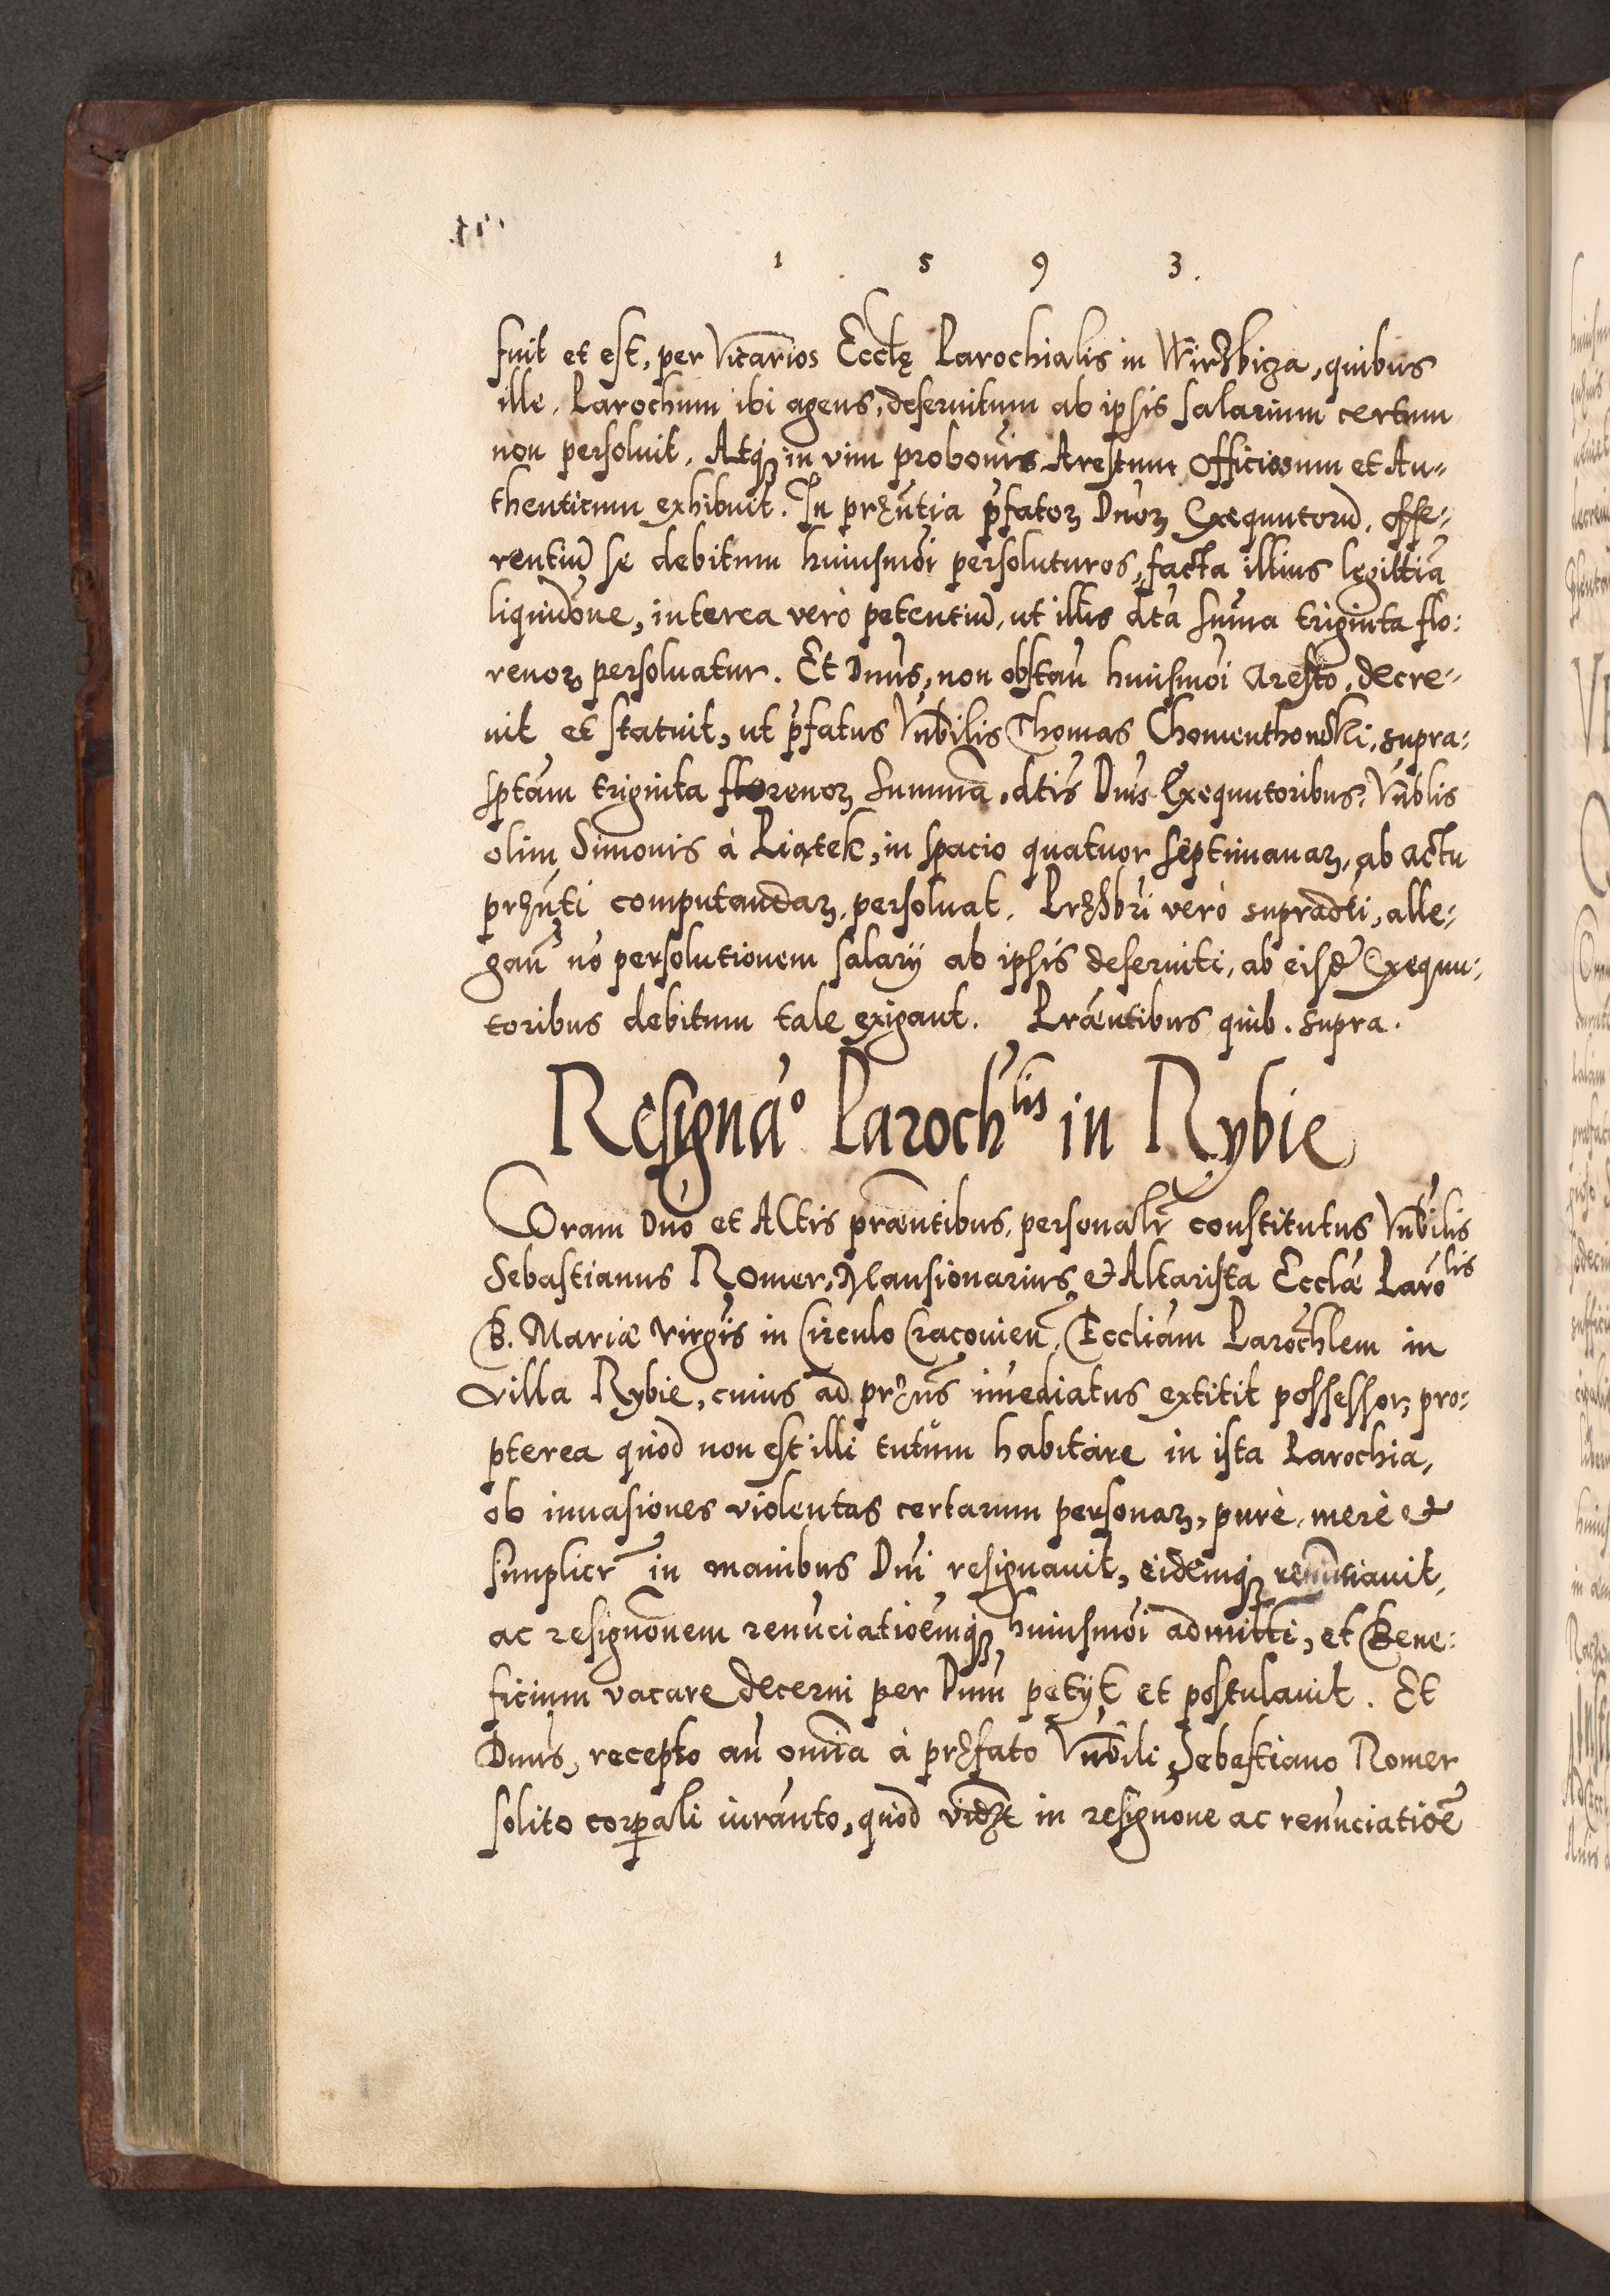 1 5 9 3.
fuit et est, per Vicarios Ecclę Parochialis in Wirzbiza, quibus
ille, Parochum ibi agens, deseruitum ab ipsis salarium certum
non persoluit. Atqꝫ in vim probonis Arestum officiosum et Au=
thenticum exhibuit. In prꝫntia p̃fatoꝝ Dnoꝝ Exequutorũ, offe=
rentiũ se debitum huiusmoi persoluturos, facta illius legittia
liquidone, interea verò petentiũ, ut illis dta suma triginta flo:
renoꝝ persoluatur. Et Dnus, non obstan̄ huiusmoi aresto, decre=
uit et statuit, ut p̃fatus Vnbilis Thomas Chomenthowski, supra=
sptam triginta florenoꝝ summã, dtis Dnis Exequutoribus Vnblis
olim Simonis à Piątek, in spacio quatuor septimanaꝝ, ab actu
prꝫnti computandaꝝ, persoluat. Prꝫsbri verò supradti, alle=
gan̄ nõ persolutionem salarij ab ipsis deseruiti, ab eisd Exequu=
toribus debitum tale exigant. Præntibus quib. supra.
Resignao Parochlis in Rybie
Coram Dno et Actis præntibus, personalr̃ constitutus Vnbilis
Sebastianus Romer, Mansionarius et Altarista Ecclæ Parolis
B. Mariæ Virgis in Circulo Cracouien, Eccliam Parochlem in
villa Rybie, cuius ad prꝫns imediatus extitit possessor, pro=
pterea quod non est illi tutum habitare in ista Parochia,
ob inuasiones violentas certarum personaꝝ, purè, merè et
simplicr̃ in manibus Dni resignauit, eidemqꝫ renuntiauit,
ac resignonem renuciatioemqꝫ huiusmoi admitti, et Bene=
ficium vacare decerni per Dnum petijt et postulauit. Et
Dnus, recepto an̄ omnia à prꝫfato Vnbili Sebastiano Romer
solito corporali iuranto, quod vidꝫt in resignone ac renuciatioẽ